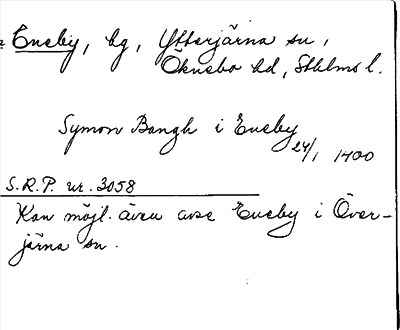 Eneby, bg, Ytterjärna sn,
Öknebo hd, Sthlms l.
Symon Bangh i Eneby
24/1 1400
S.R.P. nr. 3058
Kan möjl. även avse Eneby i Över-
järna sn.